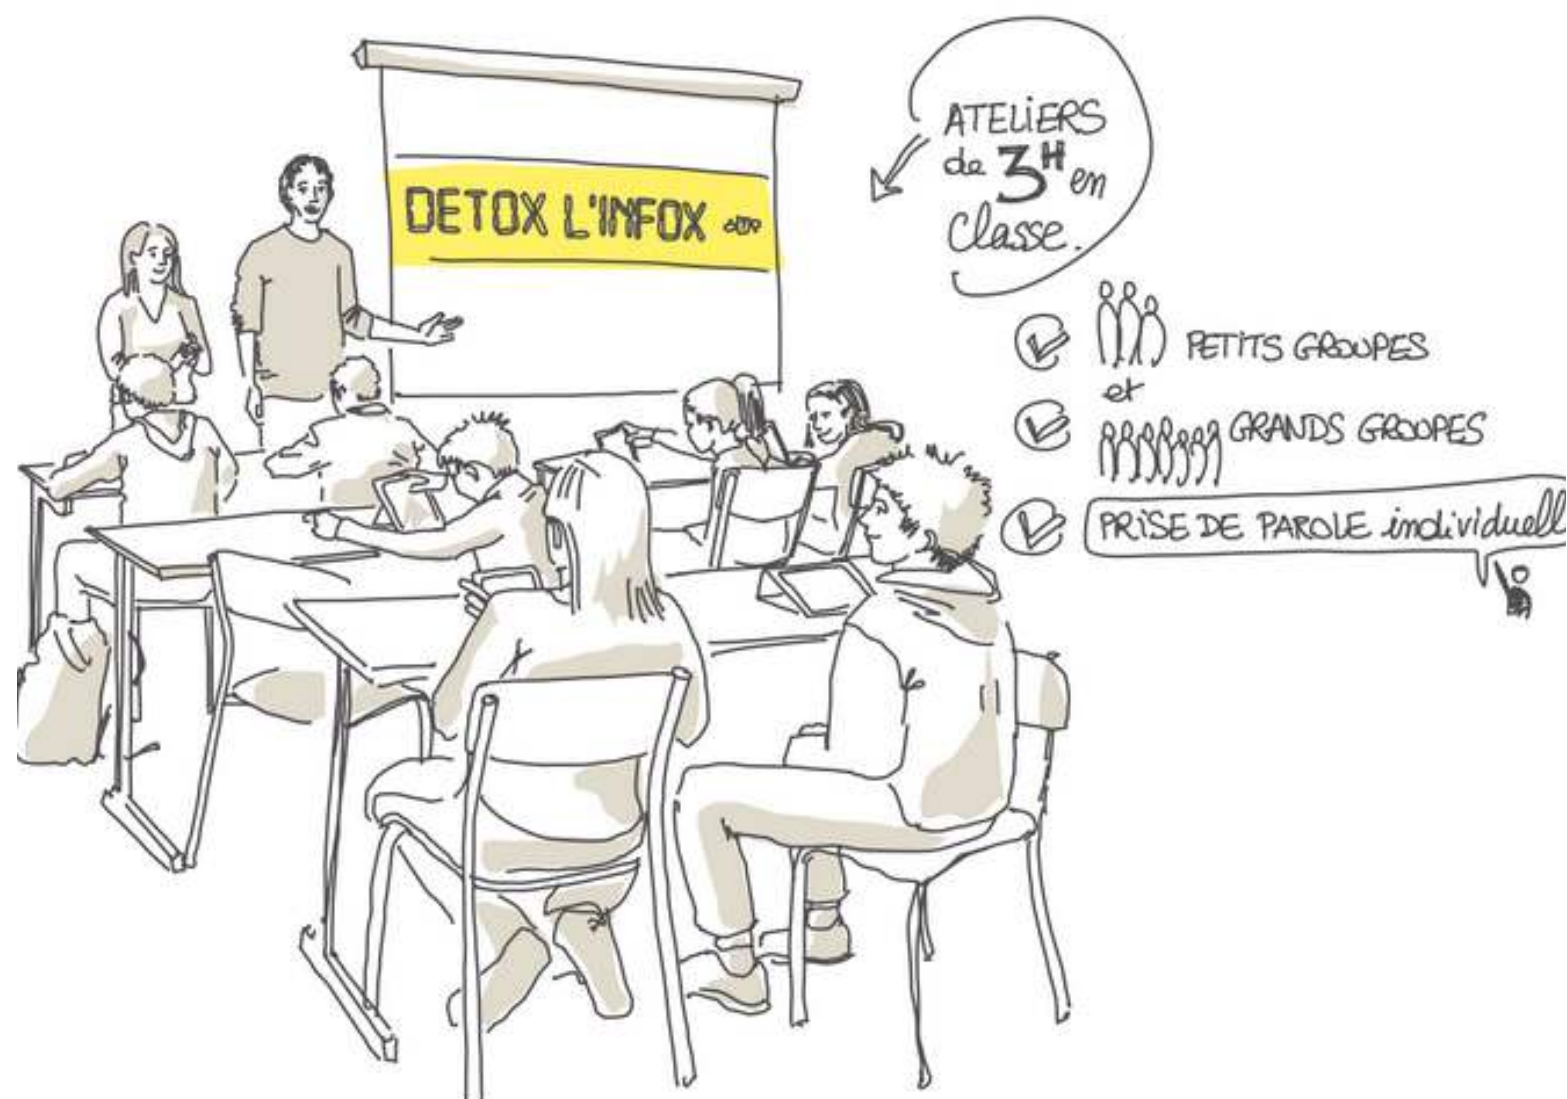 DETOX L'INFOX
ATELIERS
de 3H en
Classe.
PETITS GROUPES
et
GRANDS GROUPES
PRISE DE PAROLE individuelle